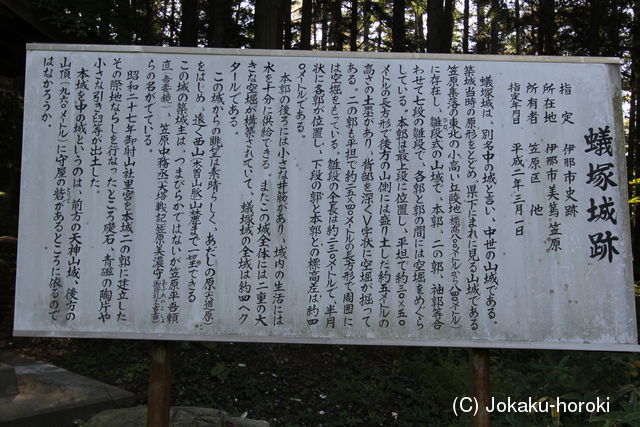 蟻塚城跡
指定 伊那市史跡
所在地 伊那市美篶笠原
所有者 笠原区 他
指定年月日 平成二年三月一日
蟻塚城は、別名中の城と言い、中世の山城である。
築城当時の原形をとどめ、県下にまれに見る山城である
笠原集落の東北の小高い丘陵地
に存在し、雛段式の山城で、本郭、二の郭、袖郭等合
わせて七段の雛段で、各郭と郭の間には空堀をめぐら
している。本郭は最上段に位置し、平坦で約
メートルの長方形で後方の山側には盛り土した約五メートルの
高さの土塁があり、背部を深くV字状に空堀が掘って
ある。二の郭も平坦で約二五×四〇メートルの長方形で周囲に
は空堀をもっている。雛段の全長は約 メートルで、半月
状に各郭が位置し、下段の郭と本郭との標高差は約四
〇メートルである。
本郭の後方には小さな井筋があり、城内の生活には
水を十分に供給できる。またこの城全体には二重の大
きな空堀が構築されていて、蟻塚城の全域は約四ヘク
タールである。
この城からの眺望は素晴らしく、あざしの原(大通原)
をはじめ、遠く西山(木曽山脈)山麓まで一望できる
この城の築城主は、つまびらかではないが笠原平吾頼
直、 笠原
らの名がでている。
昭和二十七年御射山社里宮を本城二の郭に建立した
その際地ならしを行なったところ硯石、青磁の陶片や
小さな引き臼等が出土した。
本城を中の城というのは、前方の天神山城、後方の
山頂(一九六〇メートル)に守屋の砦があるところに依るので
はなかろうか。
(C) Jokaku-horoki